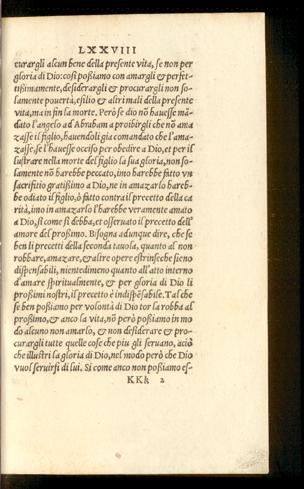 LXXVIII
curargli alcun bene della presente vita, se non per
gloria di Dio: così poßiamo con amargli & perfet-
tißimamente, desiderargli & procurargli non so-
lamente pouertà, esilio & altri mali della presente
vita, ma in fin la morte. Però se dio nō hauesse mā-
dato l'angelo ad Abraham a proibirgli che nō ama
zasse il figlio, hauendogli gia comandato che l'ama-
zasse, se l'hauesse occiso per obedire a Dio, et per il
lustrare nella morte del figlio la sua gloria, non so-
lamente nō harebbe peccato, imo harebbe fatto vn
sacrifitio gratißimo a Dio, ne in amazarlo hareb-
be odiato il figlio, ò fatto contra il precetto della ca
rità, imo in amazarlo l'harebbe veramente amato
a Dio, sì come si debba, et osseruato il precetto dell'
amore del proßimo. Bisogna adunque dire, che se
ben li precetti della seconda tauola, quanto al non
robbare, amazare, & altre opere estrinseche sieno
dispensabili, nientedimeno quanto all'atto interno
d'amare spiritualmente, & per gloria di Dio li
proßimi nostri, il precetto è indispēsabile. Tal che
se ben poßiamo per volontà di Dio tor la robba al
proßimo, & anco la vita, nō però poßiamo in mo
do alcuno non amarlo, & non desiderare & pro-
curargli tutte quelle cose che piu gli seruano, aciò
che illustri la gloria di Dio, nel modo però che Dio
vuol seruirsi di lui. Si come anco non poßiamo es-
KKk 2